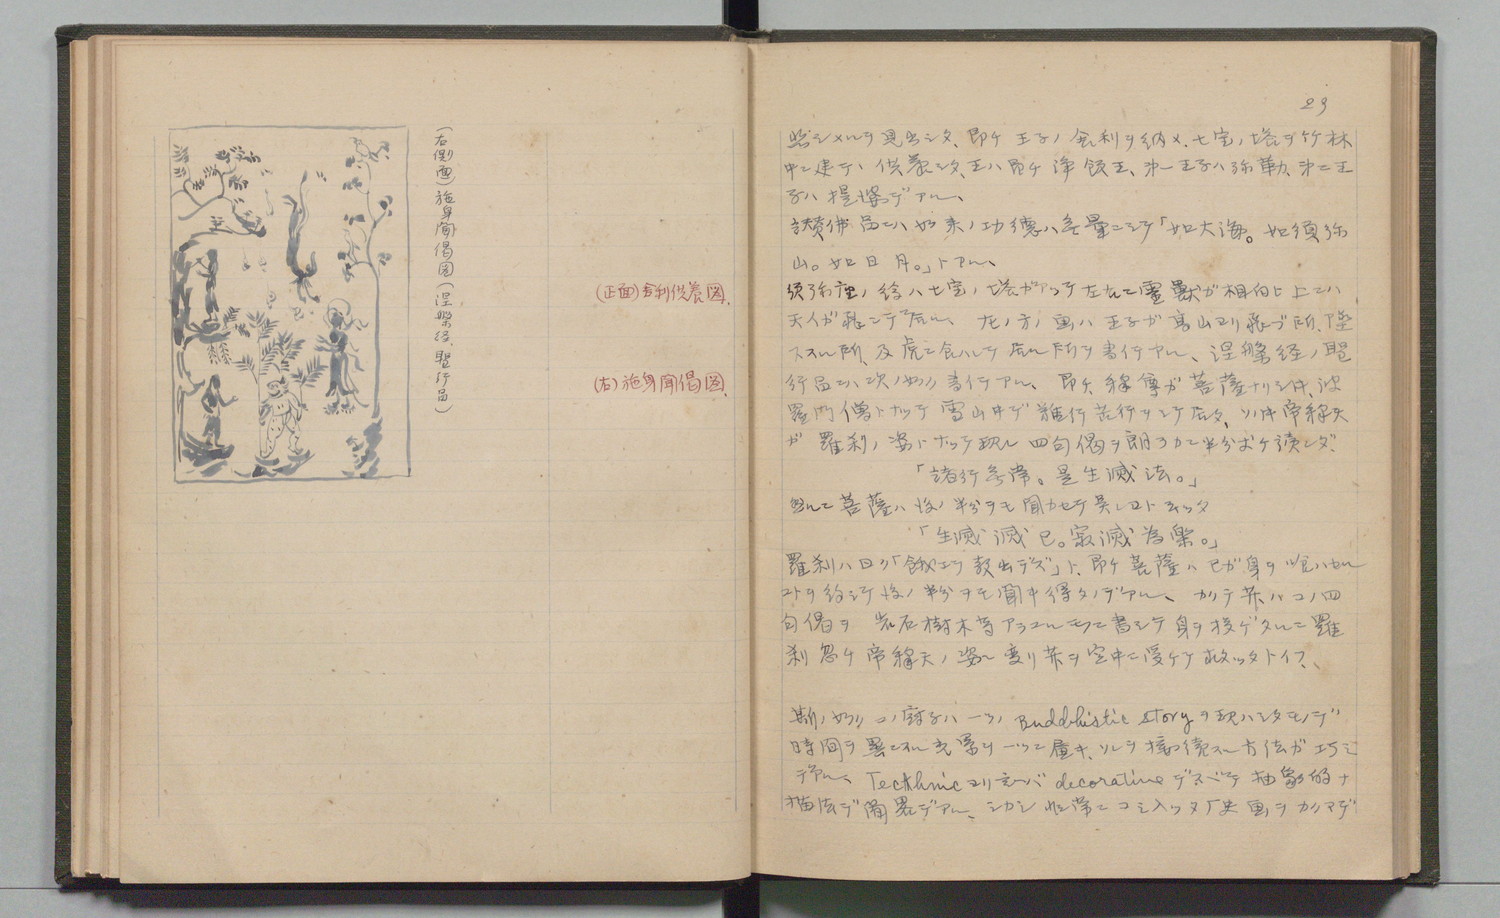 (右側面)施身聞偈図(涅槃経、聖行品)
(正面)舎利供養図、
(右)施身聞偈図、
29
即チ王子ノ舎利ヲ納メ、七宝ノ塔ヲ竹林
中ニ建テ、供養シタ、王ハ即チ浄飯王、第一王子ハ弥勒、第二王
子ハ提婆デアル、
讃佛品ニハ如来ノ功徳ハ無量ニシテ「如大海。如須弥
山。如日月。」トアル、
須弥座ノ絵ハ七宝ノ塔ガアッテ左右ニ霊獣ガ相向ヒ上ニハ
天人ガ飛ンデ居ル、左ノ方ノ画ハ王子ガ高山ヨリ飛ブ所、墜
スル所、及虎ニ食ハレテ居ル所ヲ書イテアル、涅槃経ノ聖
行品ニハ次ノ如ク書イテアル、即チ釋尊ガ菩薩ナリシ時、波
羅門僧トナッテ雪山中デ難行苦行ヲシテ居タ、ソノ時帝釋天
ガ羅刹ノ姿トナッテ現レ四句偈ヲ朗ラカニ半分ダケ読ンダ、
「諸行無常。是生滅法。」
然ルニ菩薩ハ後ノ半分ヲモ聞カセテ呉レヨト
「生滅滅已。寂滅為楽。」
羅刹ハ曰ク「餓エテ声出デズ」ト、即チ菩薩ハ己ガ身ヲ喰ハセル
コトヲ約シテ後ノ半分ヲモ聞キ得タノデアル、カクテ菩薩ハコノ四
句偈ヲ岩石樹木等アラユルモノニ書シテ身ヲ投ゲタルニ羅
刹忽チ帝釋天ノ姿ニ変リ菩薩ヲ空中ニ受ケテ救ッタトイフ、
斯ノ如クコノ廚子ハ一ツノ Buddhistic story ヲ現ハシタモノデ
時間ヲ異ニスル光景ヲ一ツニ畫キ、ソレヲ接続スル方法ガ巧ミ
デアル、Tecthnic ヨリ云ヘバ decorative デスベテ抽象的ナ
描法デ簡略デアル、シカシ非常ニコミ入ッタ歴史画ヲカクマデ